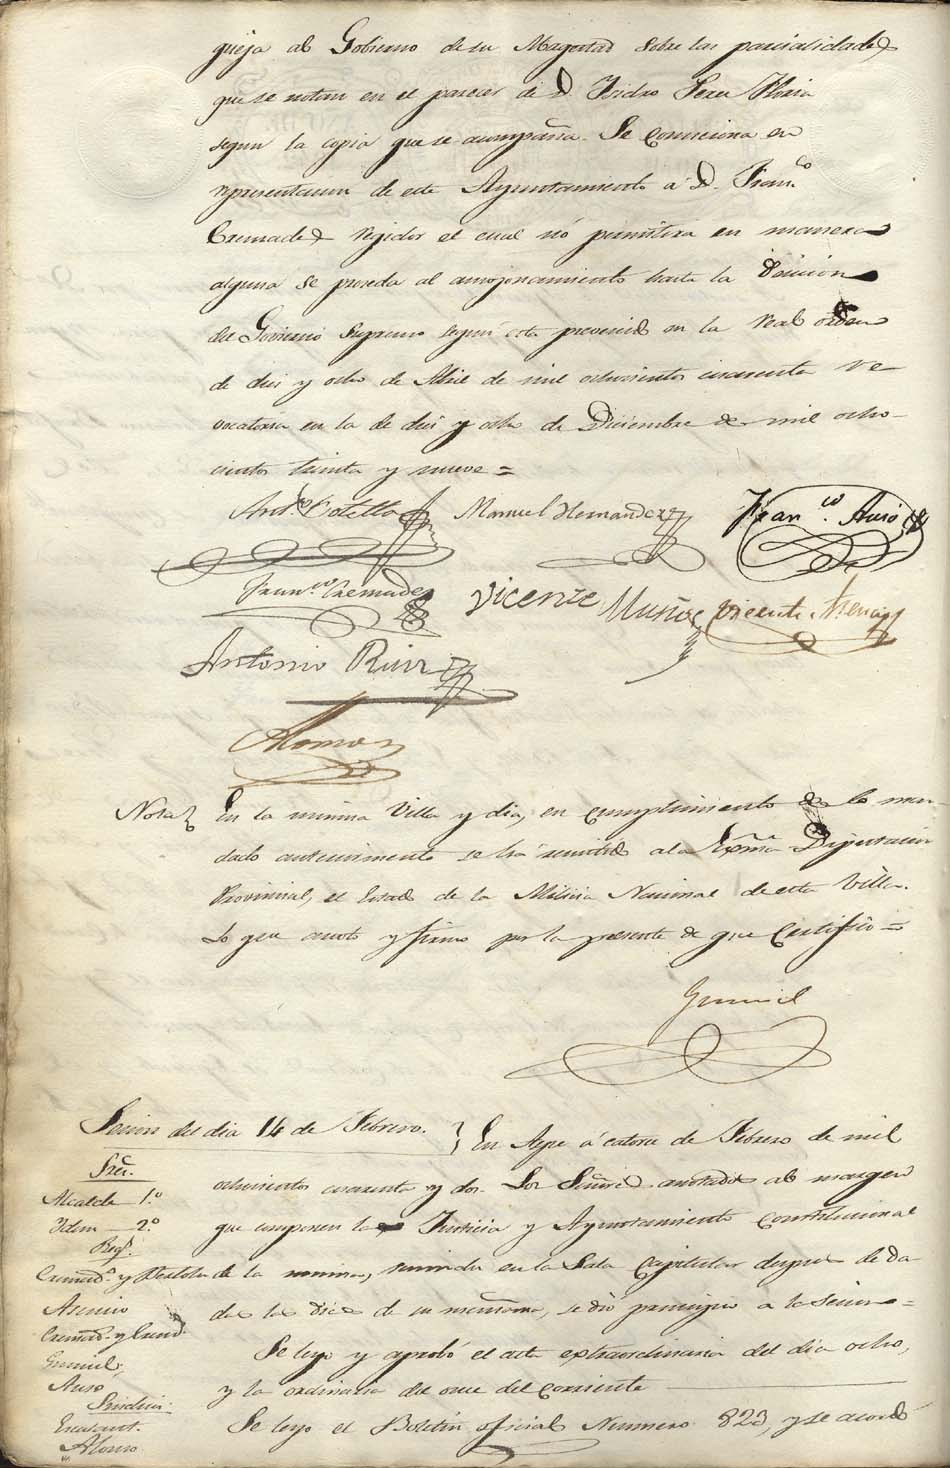 queja al Gobierno de su Magestad sobre las parcialidades
que se notan en el parecer de D. Isidro Perez
segun la copia que se acompaña. Se comisiona en
representacion de este Ayuntamiento a D. Fran.co
Cremades regidor el cual nó permitira en manera
alguna se proceda al amojonamiento hasta la
del Govierno Supremo segun esta prevenido en la real orden
de diez y ocho de Abril de mil ochocientos cuarenta re-
vocatoria en la de diez y ocho de Diciembre de mil ocho-
cientos treinta y nueve =
Ant.o Cotella Manuel Hernandez Fran.co Auso
Fran.co Cremades Vicente Muñoz Vicente
Antonio Ruiz
Alonso
Nota En la misma Villa y dia, en cumplimiento de lo man-
dado anteriormente se há remitido a la Exma Diputacion
Provincial, el Estado de la Milicia Nacional de esta Villa.
Lo que anoto y firmo por la presente de que Certifico =
Gumiel
Sesion del dia 14 de Febrero. } En Aspe á catorce de Febrero de mil
Sres.
ochocientos cuarenta y dos. Los Señores anotados al margen
Alcalde 1.o
que componen la Justicia y Ayuntamiento Constitucional
Idem 2.o
Reg.s
de la misma, reunidos en la Sala Capitular despues de da
Cremad.s y Botella
das las diez de su mañana, se dió principio a la Sesion =
Asencio
Cremad.s y
Se leyo y aprobó el acta extraordinaria del dia ocho,
Gumiel
y la ordinaria del once del corriente
Auso
Sindicos
Se leyo el Boletin oficial Numero 823, y se acordó
Alonso